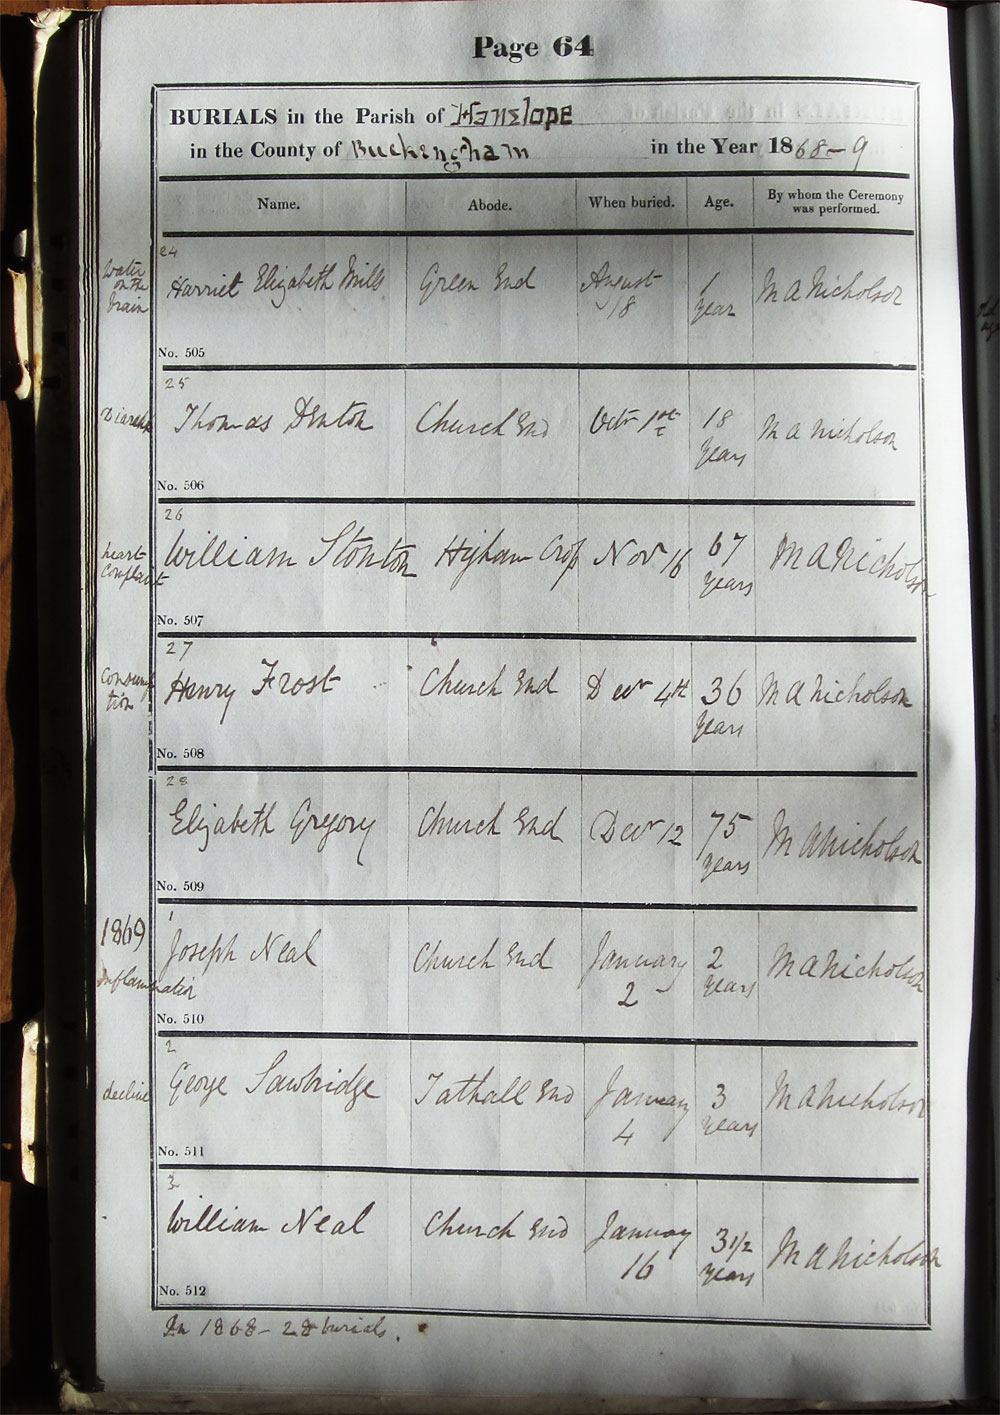 Page 64
BURIALS in the Parish of Hanslope
in the County of Buckingham in the Year 1868-9
Name. Abode. When buried. Age. By whom the Ceremony was performed.
24
water on the brain
Harriet Elizabeth Mills Green End August 18 1 year M A Nicholson
No. 505
25
Thomas Denton Church End Octr 1st 18 years M A Nicholson
No. 506
26
heart complaint
William Stonton Higham Cross Novr 16 67 years M A Nicholson
No. 507
27
Consumption
Henry Frost Church End Decr 4th 36 years M A Nicholson
No. 508
28
Elizabeth Gregory Church End Decr 12 75 years M A Nicholson
No. 509
1869
1
Joseph Neal Church End January 2 2 years M A Nicholson
Inflammation
No. 510
2
decline
George Sawbridge Tathall End January 4 3 years M A Nicholson
No. 511
3
William Neal Church End January 16 3 1/2 years M A Nicholson
No. 512
In 1868 - 28 burials.